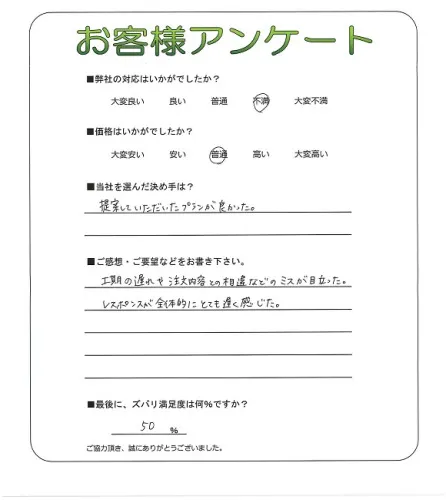 お客様アンケート
■弊社の対応はいかがでしたか？
大変良い 良い 普通 不満 大変不満
■価格はいかがでしたか？
大変安い 安い 普通 高い 大変高い
■当社を選んだ決め手は？
提案していただいたプランが良かった。
■ご感想・ご要望などをお書き下さい。
工期の遅れや注文内容との相違などのミスが目立った。
レスポンスが全体的にとても遅く感じた。
■最後に、ズバリ満足度は何%ですか？
50 %
ご協力頂き、誠にありがとうございました。